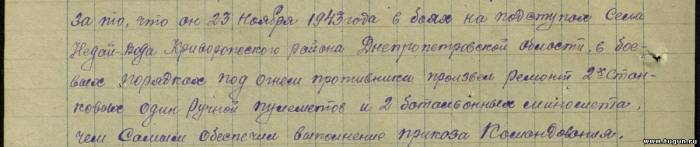 За то, что он 23 ноября 1943 года в боях на подступах Села
Недай-вода Криворожского района Днепропетровской области, в бое-
вых порядках под огнем противника произвел ремонт 2х Стан-
ковых один ручной пулеметов и 2 батальонных миномета,
чем Самым обеспечил выполнение приказа Командования.
www.tugun.ru